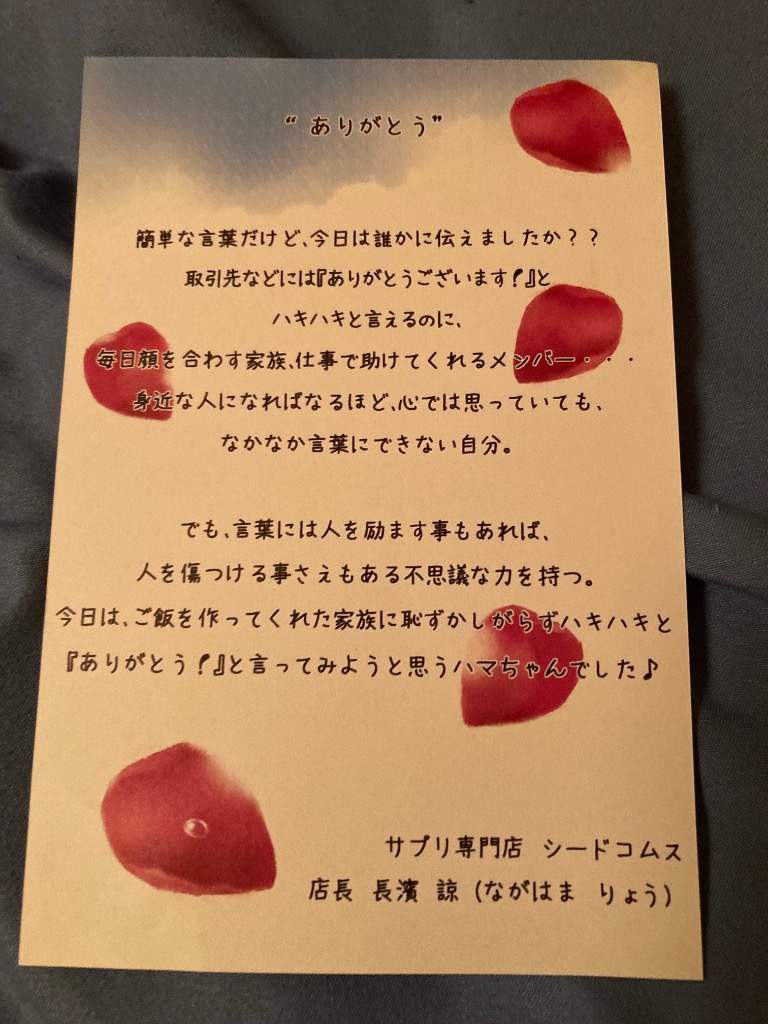 “ ありがとう”
簡単な言葉だけど、今日は誰かに伝えましたか？？
取引先などには『ありがとうございます！』と
ハキハキと言えるのに、
毎日顔を合わす家族、仕事で助けてくれるメンバー・・・
身近な人になればなるほど、心では思っていても、
なかなか言葉にできない自分。
でも、言葉には人を励ます事もあれば、
人を傷つける事さえもある不思議な力を持つ。
今日は、ご飯を作ってくれた家族に恥ずかしがらずハキハキと
『ありがとう！』と言ってみようと思うハマちゃんでした♪
サプリ専門店　シードコムス
店長 長濱 諒（ながはま　りょう）